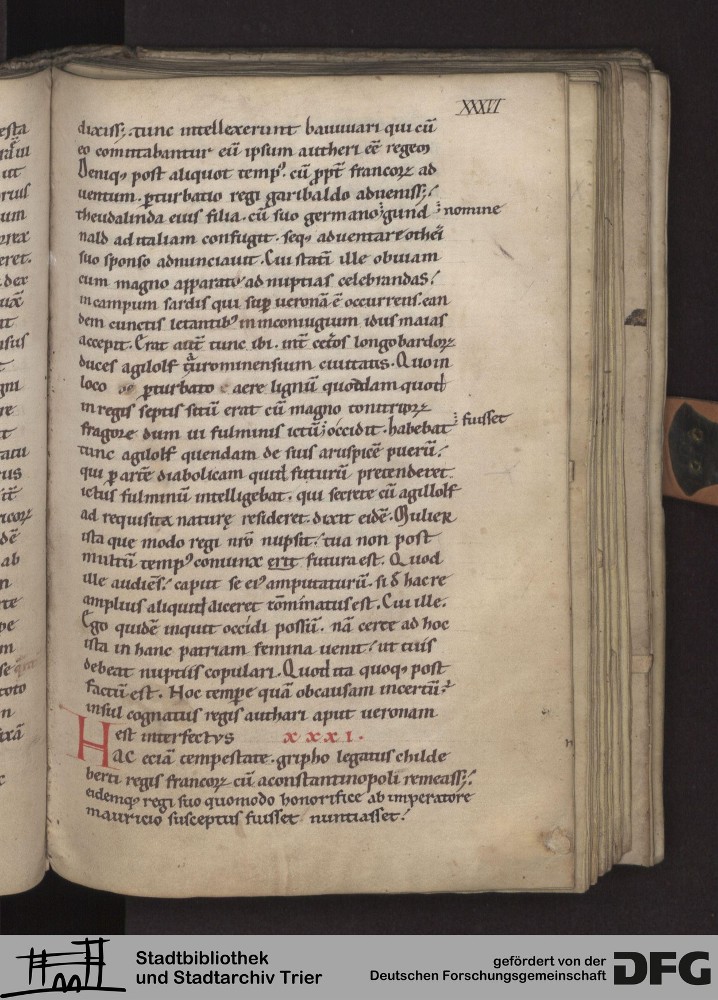 XXXVI
dixiss&; tunc intellexerunt bauuuari qui cū
eo comitabantur eū ipsum autheri eē regem
Deniq; post aliquot temp9 cū ꝓpt̄ francoꝝ ad
uentum ꝑturbatio regi garibaldo adueniss&;
theudalinda eius filia cū suo germano gund nomine
nald ad italiam confugit seq; aduentare othei
suo sponso adnunciauit. Cui statī ille obuiam
cum magno apparatu ad nuptias celebrandas
in campum sardis qui sup ueronā ē occurrens ean
dem cunctis letantib9 in coniugium idus maias
accepit. Erat aut̄ tunc ibi int̄ cet̄os longobardoꝝ
duces agilolf taurominensium ciuitatis. Quo in
loco ꝑturbato aere lignū quoddam quod
in regis septis sitū erat cū magno tonitruoꝝ
fragore dum ui fulminis ictū occidit habebat fuisset
tunc agilolf quendam de suis aruspicē puerū
qui ꝑ artē diabolicam quid futurū pretenderet
ictus fulminū intelligebat. qui secrete cū agillolf
ad requisita naturę resideret dixit eidē. Mulier
ista que modo regi nr̄o nupsit tua non post
multū temp9 coniunx erit futura est. Quod
ille audiens caput se ei9 amputaturū si đ hac re
amplius aliquid diceret cōminatus est. Cui ille.
Ego quidē inquit occidi possū. nā certe ad hoc
ista in hanc patriam femina uenit ut tuis
debeat nuptiis copulari. Quod ita quoq; post
factū est. Hoc tempe quā ob causam incertū
insul cognatus regis authari aput ueronam
est interfectus XXXI.
Hac eciā tempestate gripho legatus childe
berti regis francoꝝ cū a constantinopoli remeass&;
eidemq; regi suo quomodo honorifice ab imperatore
mauricio susceptus fuisset nuntiasset
Stadtbibliothek
und Stadtarchiv Trier
gefördert von der
Deutschen Forschungsgemeinschaft
DFG